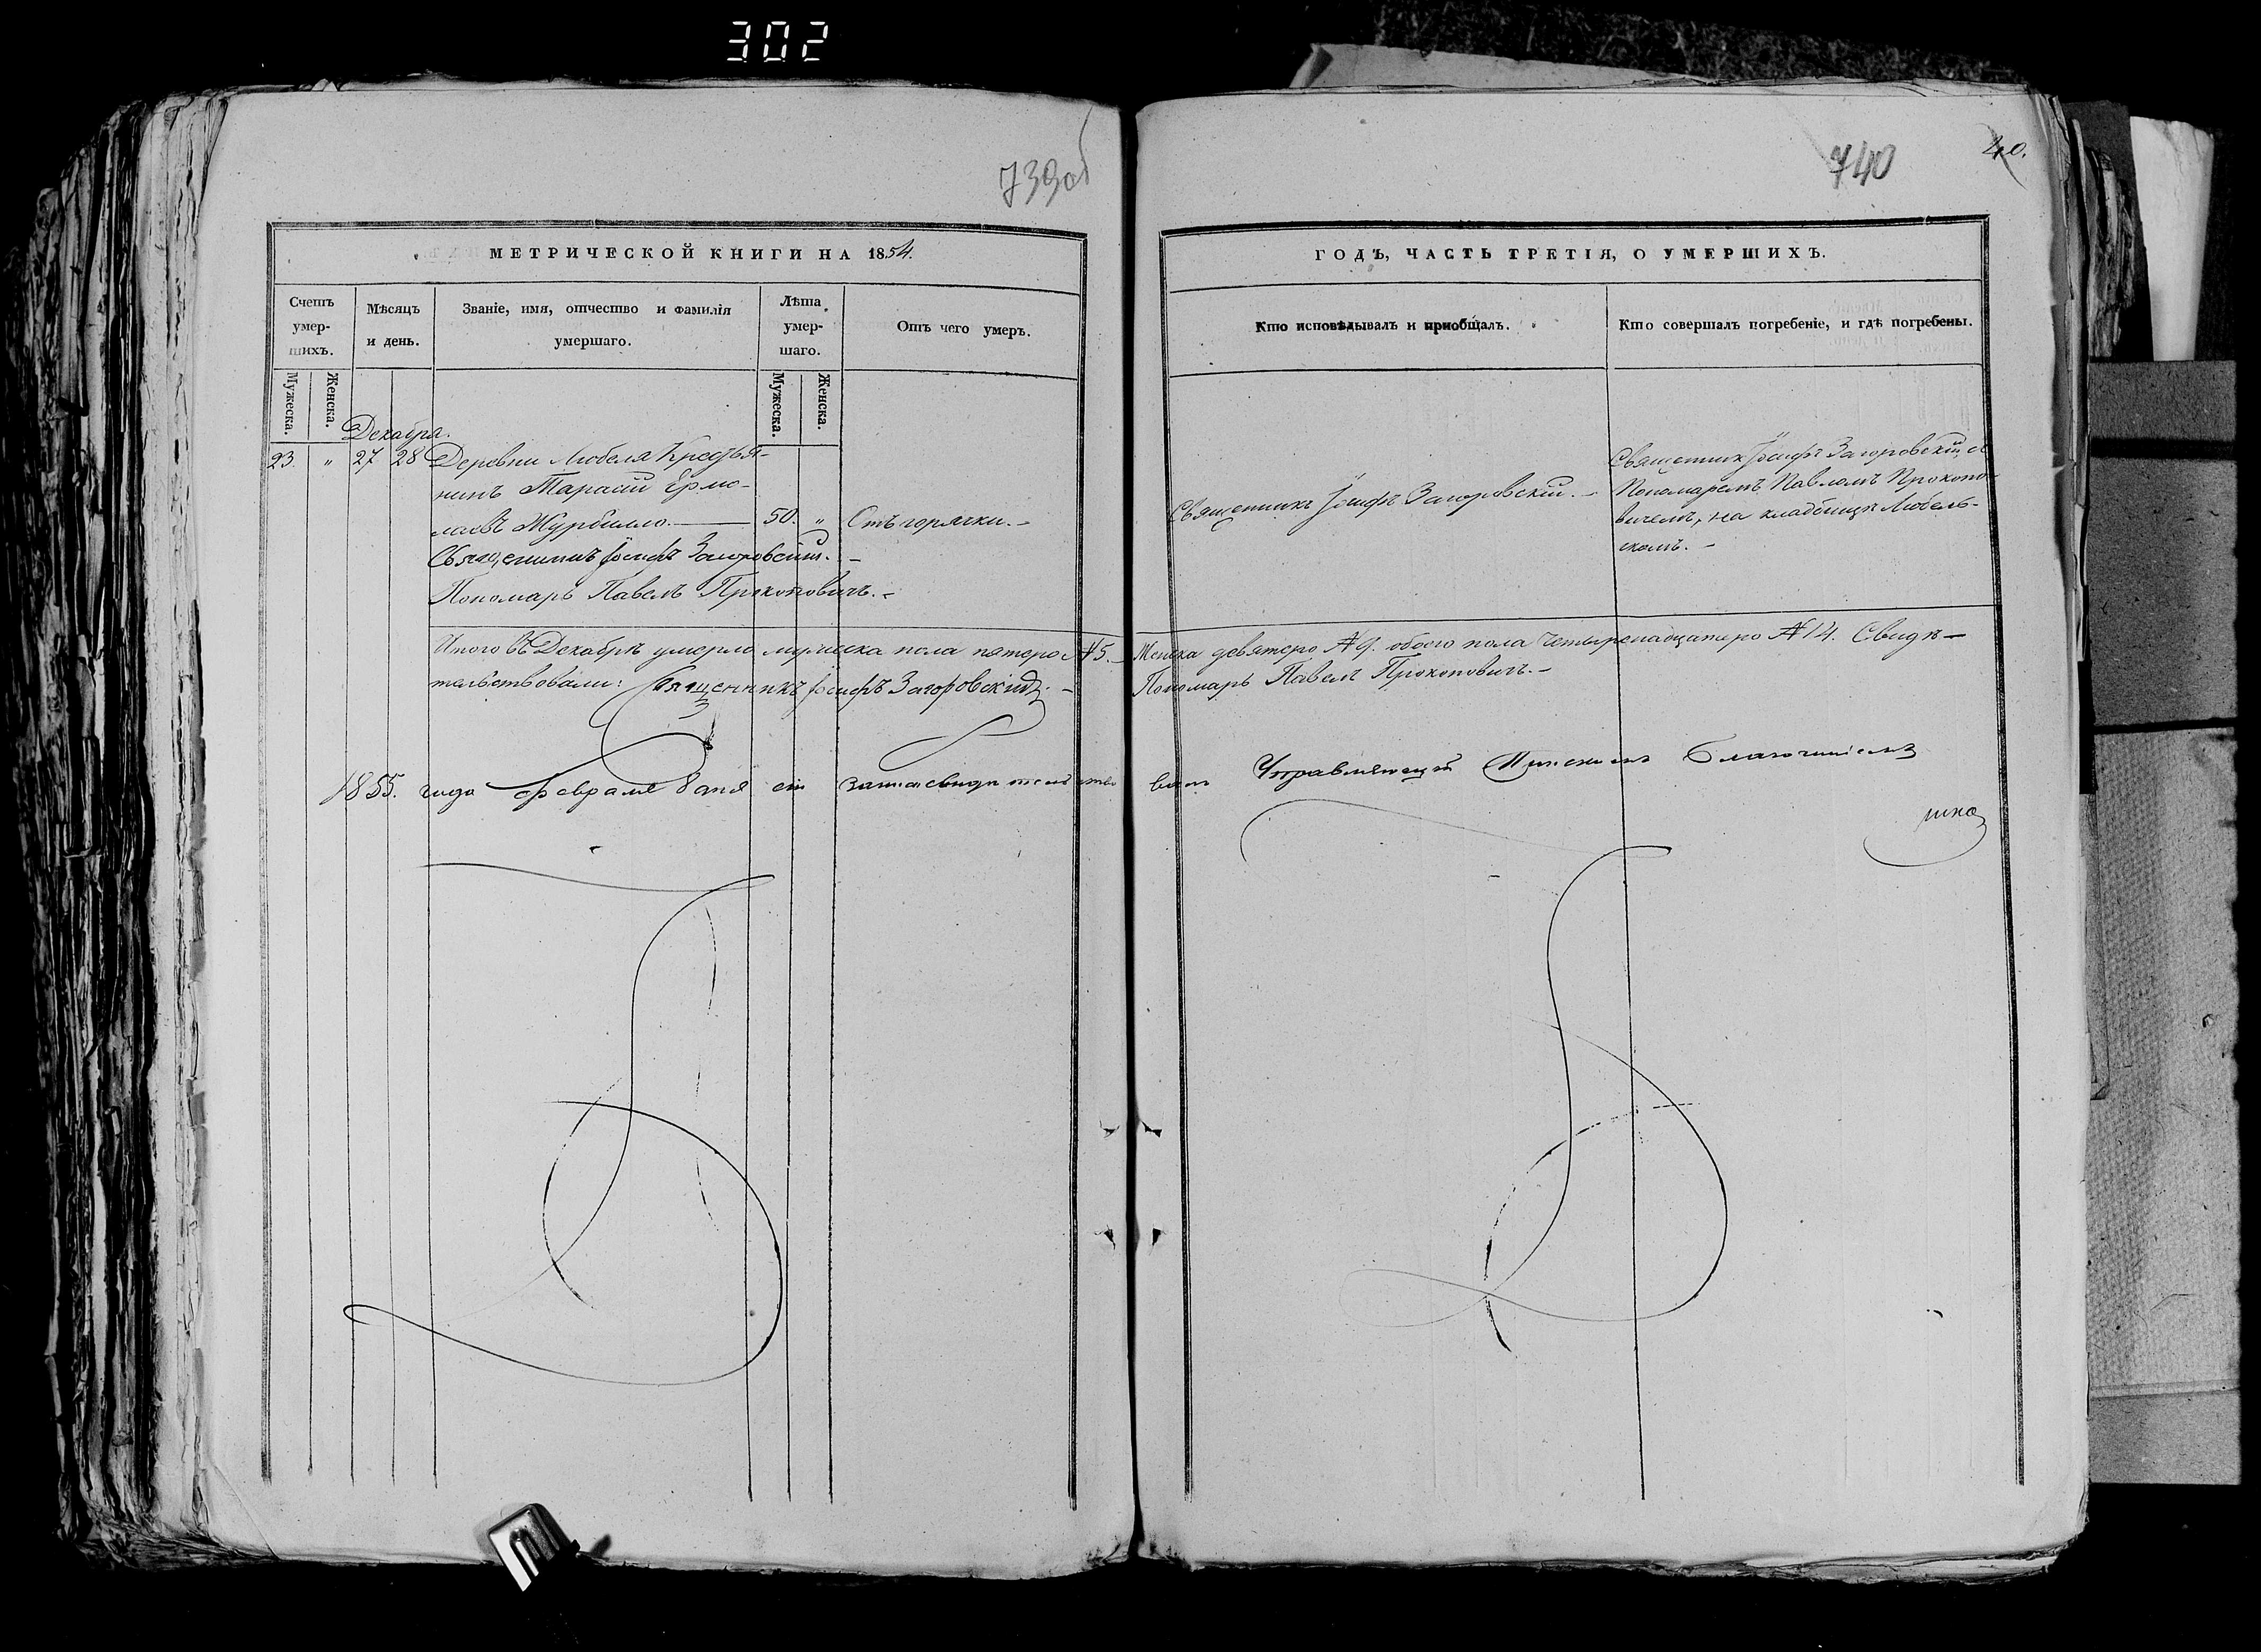 302
739об
740
40.
МЕТРИЧЕСКОЙ КНИГИ НА 1854.
ГОДЪ, ЧАСТЬ ТРЕТІЯ, О УМЕРШИХЪ.
Счетъ умер-шихъ.
Мѣсяцъ и день.
Званіе, имя, отчество и фамилія умершаго.
Лѣта умер-шаго.
Отъ чего умеръ.
Кто исповѣдывалъ и приобщалъ.
Кто совершалъ погребеніе, и гдѣ погребены.
Мужеска.
Женска.
Мужеска.
Женска.
Декабря.
23. " 27 28 Деревни Любеля Крестья-
нинъ Тарасій Ермо-
лаевъ Журбилло. 50. " Отъ горячки.
Священникъ Іосифъ Загоровскій.
Пономарь Павелъ Прокоповичъ.
Священникъ Іосифъ Загоровскій.
Священникъ Іосифъ Загоровскій, съ
Пономаремъ Павломъ Прокопо-
вичемъ, на кладбищѣ Любель-
скомъ.
Итого въ Декабрѣ умерло мужеска пола пятеро №5. Женска девятеро №9. обоего пола четыренадцатеро №14. Свидѣ-
тельствовали: Священникъ Іосифъ Загоровскій. Пономарь Павелъ Прокоповичъ.
1855. года Февраля 8 дня сіи засвидетельство валъ Управляющій Пинскимъ Благочиніемъ